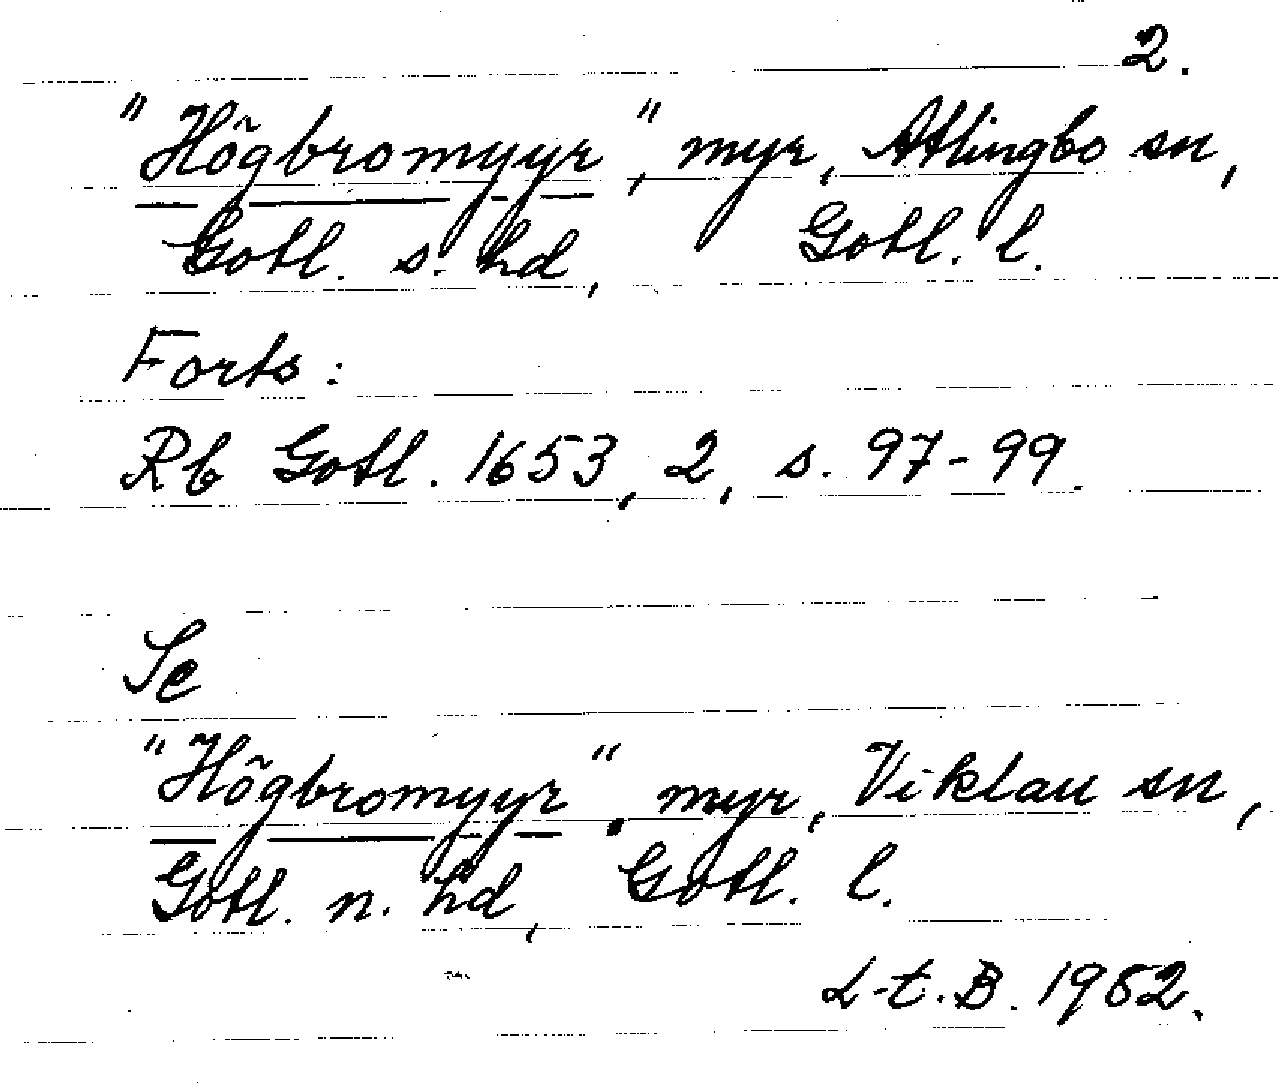 2.
"Högbromyyr", myr, Atlingbo sn,
Gotl. s. hd, Gotl. l.
Forts:
Rb Gotl. 1653, 2, s. 97-99.
Se
"Högbromyyr", myr, Viklau sn,
Gotl. n. hd, Gotl. l.
L-t. B. 1952.